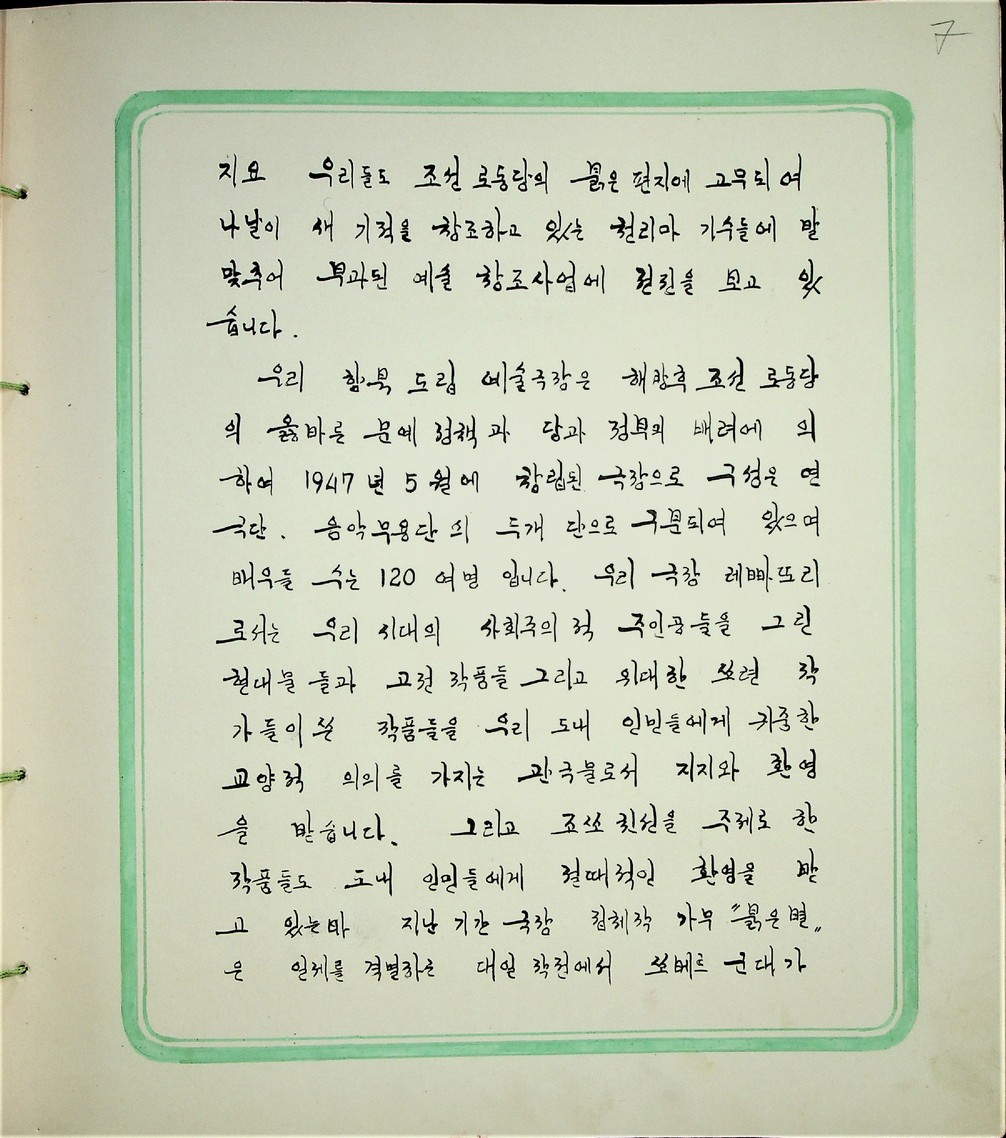 7
지요 우리들도 조선 로동당의 붉은 편지에 고무되여
나날이 새 기적을 창조하고 있는 천리마 기수들에 발
맞추어 부과된 예술 창조사업에 전진을 보고 있
습니다.
우리 함북 도립 예술극장은 해방후 조선 로동당
의 옳바른 문예 정책과 당과 정부의 배려에 의
하여 1947년 5월에 창립된 극장으로 구성은 연
극단. 음악무용단의 두개 단으로 구분되여 있으며
배우들 수는 120 여명 입니다. 우리 극장 레빠또리
로서는 우리 시대의 사회주의적 주인공들을 그린
현대물들과 고전 작품들 그리고 위대한 쏘련 작
가들이 쓴 작품들을 우리 도내 인민들에게 귀중한
교양적 의의를 가지는 관극물로서 지지와 환영
을 받습니다. 그리고 조쏘 친선을 주제로 한
작품들도 도내 인민들에게 절대적인 환영을 받
고 있는바 지난 기간 극장 집체작 가무 "붉은별"
은 일제를 격멸하는 대일 작전에서 쏘베트 군대가